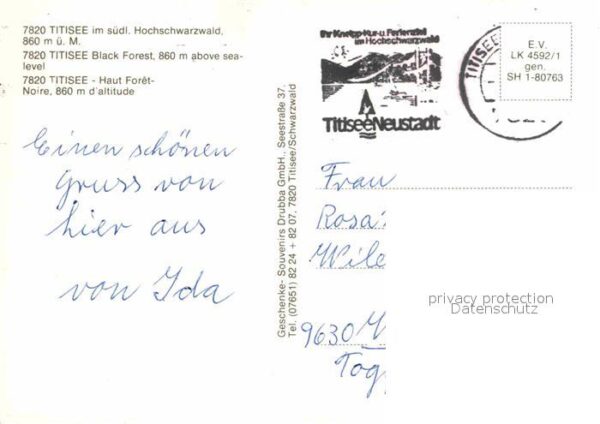 7820 TITISEE im südl. Hochschwarzwald,
860 m ü. M.
7820 TITISEE Black Forest, 860 m above sea-
level
7820 TITISEE - Haut Forêt-
Noire, 860 m d'altitude
Einen schönen
Gruss von
hier aus
von Ida
Geschenke- Souvenirs Drubba GmbH., Seestraße 37,
Tel. (07651) 82 24 + 82 07, 7820 Titisee/Schwarzwald
Ihr Kneipp-Kur-u. Ferienziel
im Hochschwarzwald
TitiseeNeustadt
TITISEE
E.V.
LK 4592/1
gen.
SH 1-80763
Frau
Rosa
Wile
9630 W
Togg
privacy protection
Datenschutz